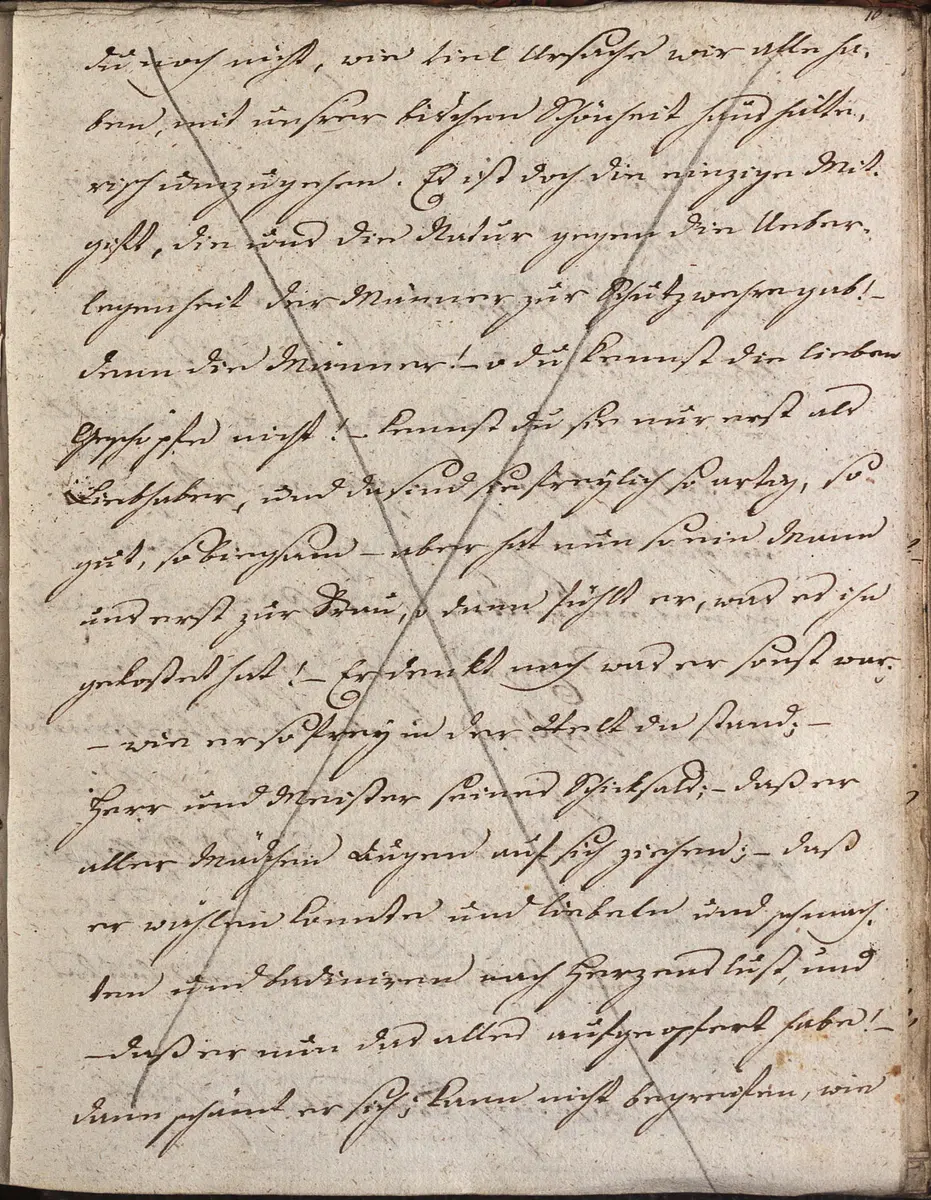 10
du noch nicht, wie viel Ursache wir alle ha-
ben, mit unsrer bischen Schönheit haushälte-
risch umzugehen. Es ist doch die einzige Mit-
gift, die uns die Natur gegen die Ueber-
legenheit der Männer zur Schutzwehre gab! –
denn die Männer! – o du kennst die lieben
Geschöpfe nicht! – kennst du sie nur erst als
Liebhaber, und da sind sie freylich so artig, so
gut, so biegsam – aber hat nun so ein Mann
uns erst zur Frau, o dann fühlt er, was es ihn
gekostet hat! – Er denkt nach was er sonst war;
– wie er so frey in der Welt da stand; –
Herr und Meister seines Schicksals; – daß er
aller Mädchen Augen auf sich ziehen; – daß
er wählen konnte und liebeln und schmach-
ten und badiniren nach Herzens lust, und
– daß er nun das alles aufgeopfert habe! –
dann schämt er sich; kann nicht begreifen, wie